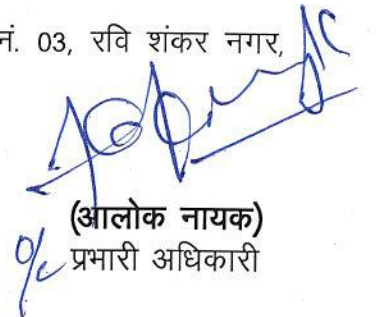 नं. 03, रवि शंकर नगर,
(आलोक नायक)
o/c प्रभारी अधिकारी